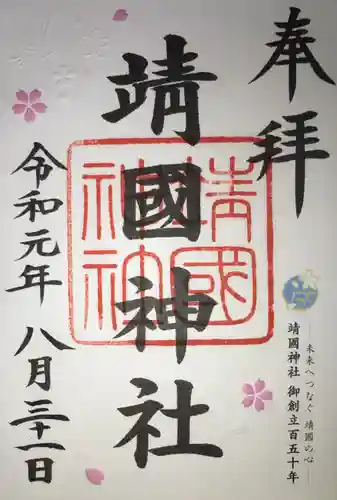 奉拝
―未来へつなぐ 靖國の心―
靖國神社 御創立百五十年
靖國神社
靖國神社
令和元年 八月三十一日